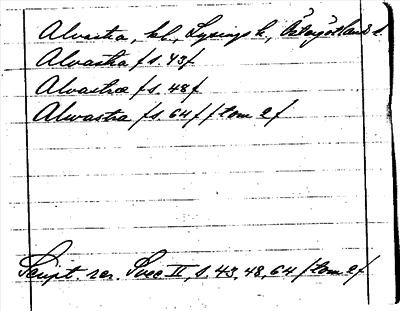 Alvastra, kl., Lysings h., Östergötlands l.
Alvastra /s. 43/
Alvastra /s. 48/
Alwastra /s. 64/ /tom 2/
Script. rer. Svec II, s. 43, 48, 64 /tom 2/